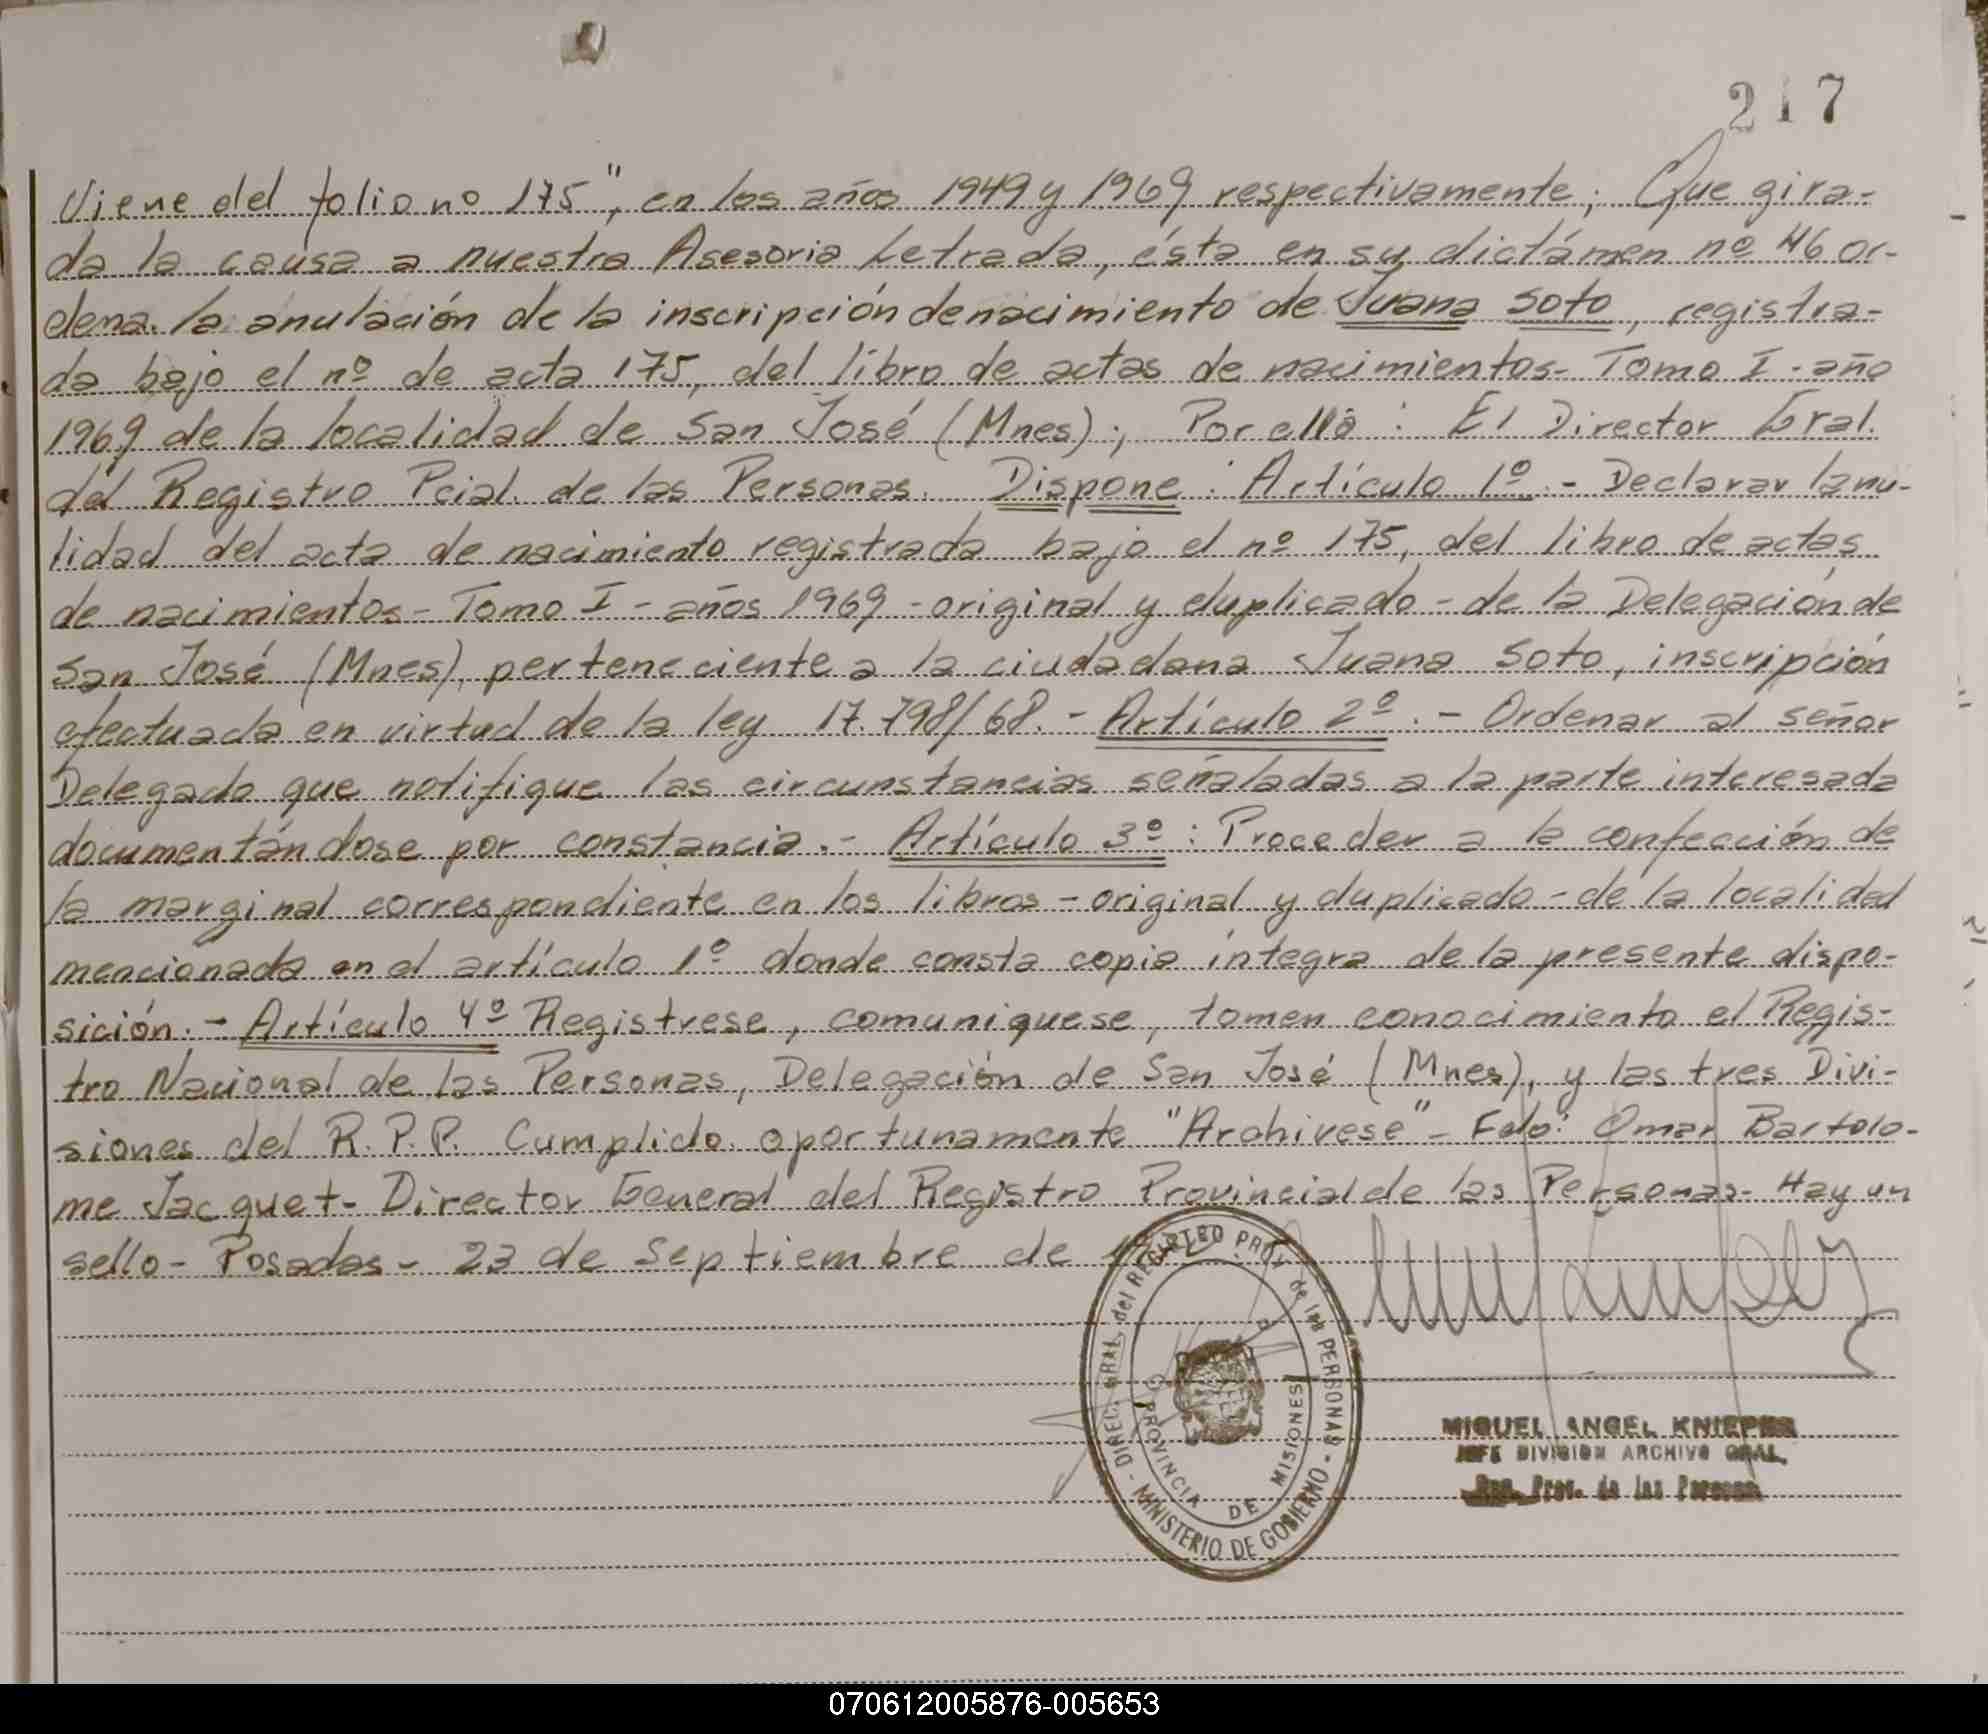 217
Viene del folio nº 175", en los años 1949 y 1969 respectivamente; Que gira-
da la causa a nuestra Asesoria Letrada, ésta en su dictámen nº 46 or-
dena la anulación de la inscripción de nacimiento de Juana Soto, registra-
da bajo el nº de acta 175, del libro de actas de nacimientos- Tomo I - año
1969 de la localidad de San José (Mnes); Por ello: El Director Gral.
del Registro Pcial. de las Personas. Dispone: Artículo 1º.- Declarar la nu-
lidad del acta de nacimiento registrada bajo el nº 175, del libro de actas
de nacimientos- Tomo I - años 1969 -original y duplicado- de la Delegación de
San José (Mnes), perteneciente a la ciudadana Juana Soto, inscripción
efectuada en virtud de la ley 17.798/68.- Artículo 2º.- Ordenar al señor
Delegado que notifique las circunstancias señaladas a la parte interesada
documentándose por constancia.- Artículo 3º: Proceder a la confección de
la marginal correspondiente en los libros -original y duplicado- de la localidad
mencionada en el artículo 1º donde consta copia íntegra de la presente dispo-
sición.- Artículo 4º Registrese, comuniquese, tomen conocimiento el Regis-
tro Nacional de las Personas, Delegación de San José (Mnes), y las tres Divi-
siones del R.P.P. Cumplido oportunamente "Archivese"- Fdo: Omar Bartolo-
me Jacquet- Director General del Registro Provincial de las Personas- Hay un
sello- Posadas- 23 de Septiembre de
DIREC. GRAL. del REGISTRO PROV. de las PERSONAS - MINISTERIO DE GOBIERNO -
PROVINCIA DE MISIONES
MIGUEL ANGEL
JEFE DIVISION ARCHIVO GRAL.
Reg. Prov. de las Personas
070612005876-005653